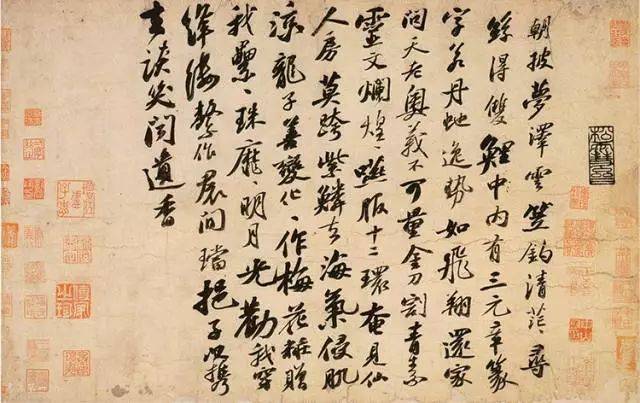 朝披夢澤雲笠釣清茫茫尋
絲得雙鯉中内有三元章篆
字若丹虵逸勢如飛翔還家
問天老奧義不可量金刀割青素
靈文爛煌煌嚥服十二環奄見仙
人房莫跨紫鱗去海氣侵肌
涼龍子善變化化作梅花糚贈
我纍纍珠靡靡明月光勸我穿
絳縷繫作裾間璫挹子以攜
去談笑聞遺香